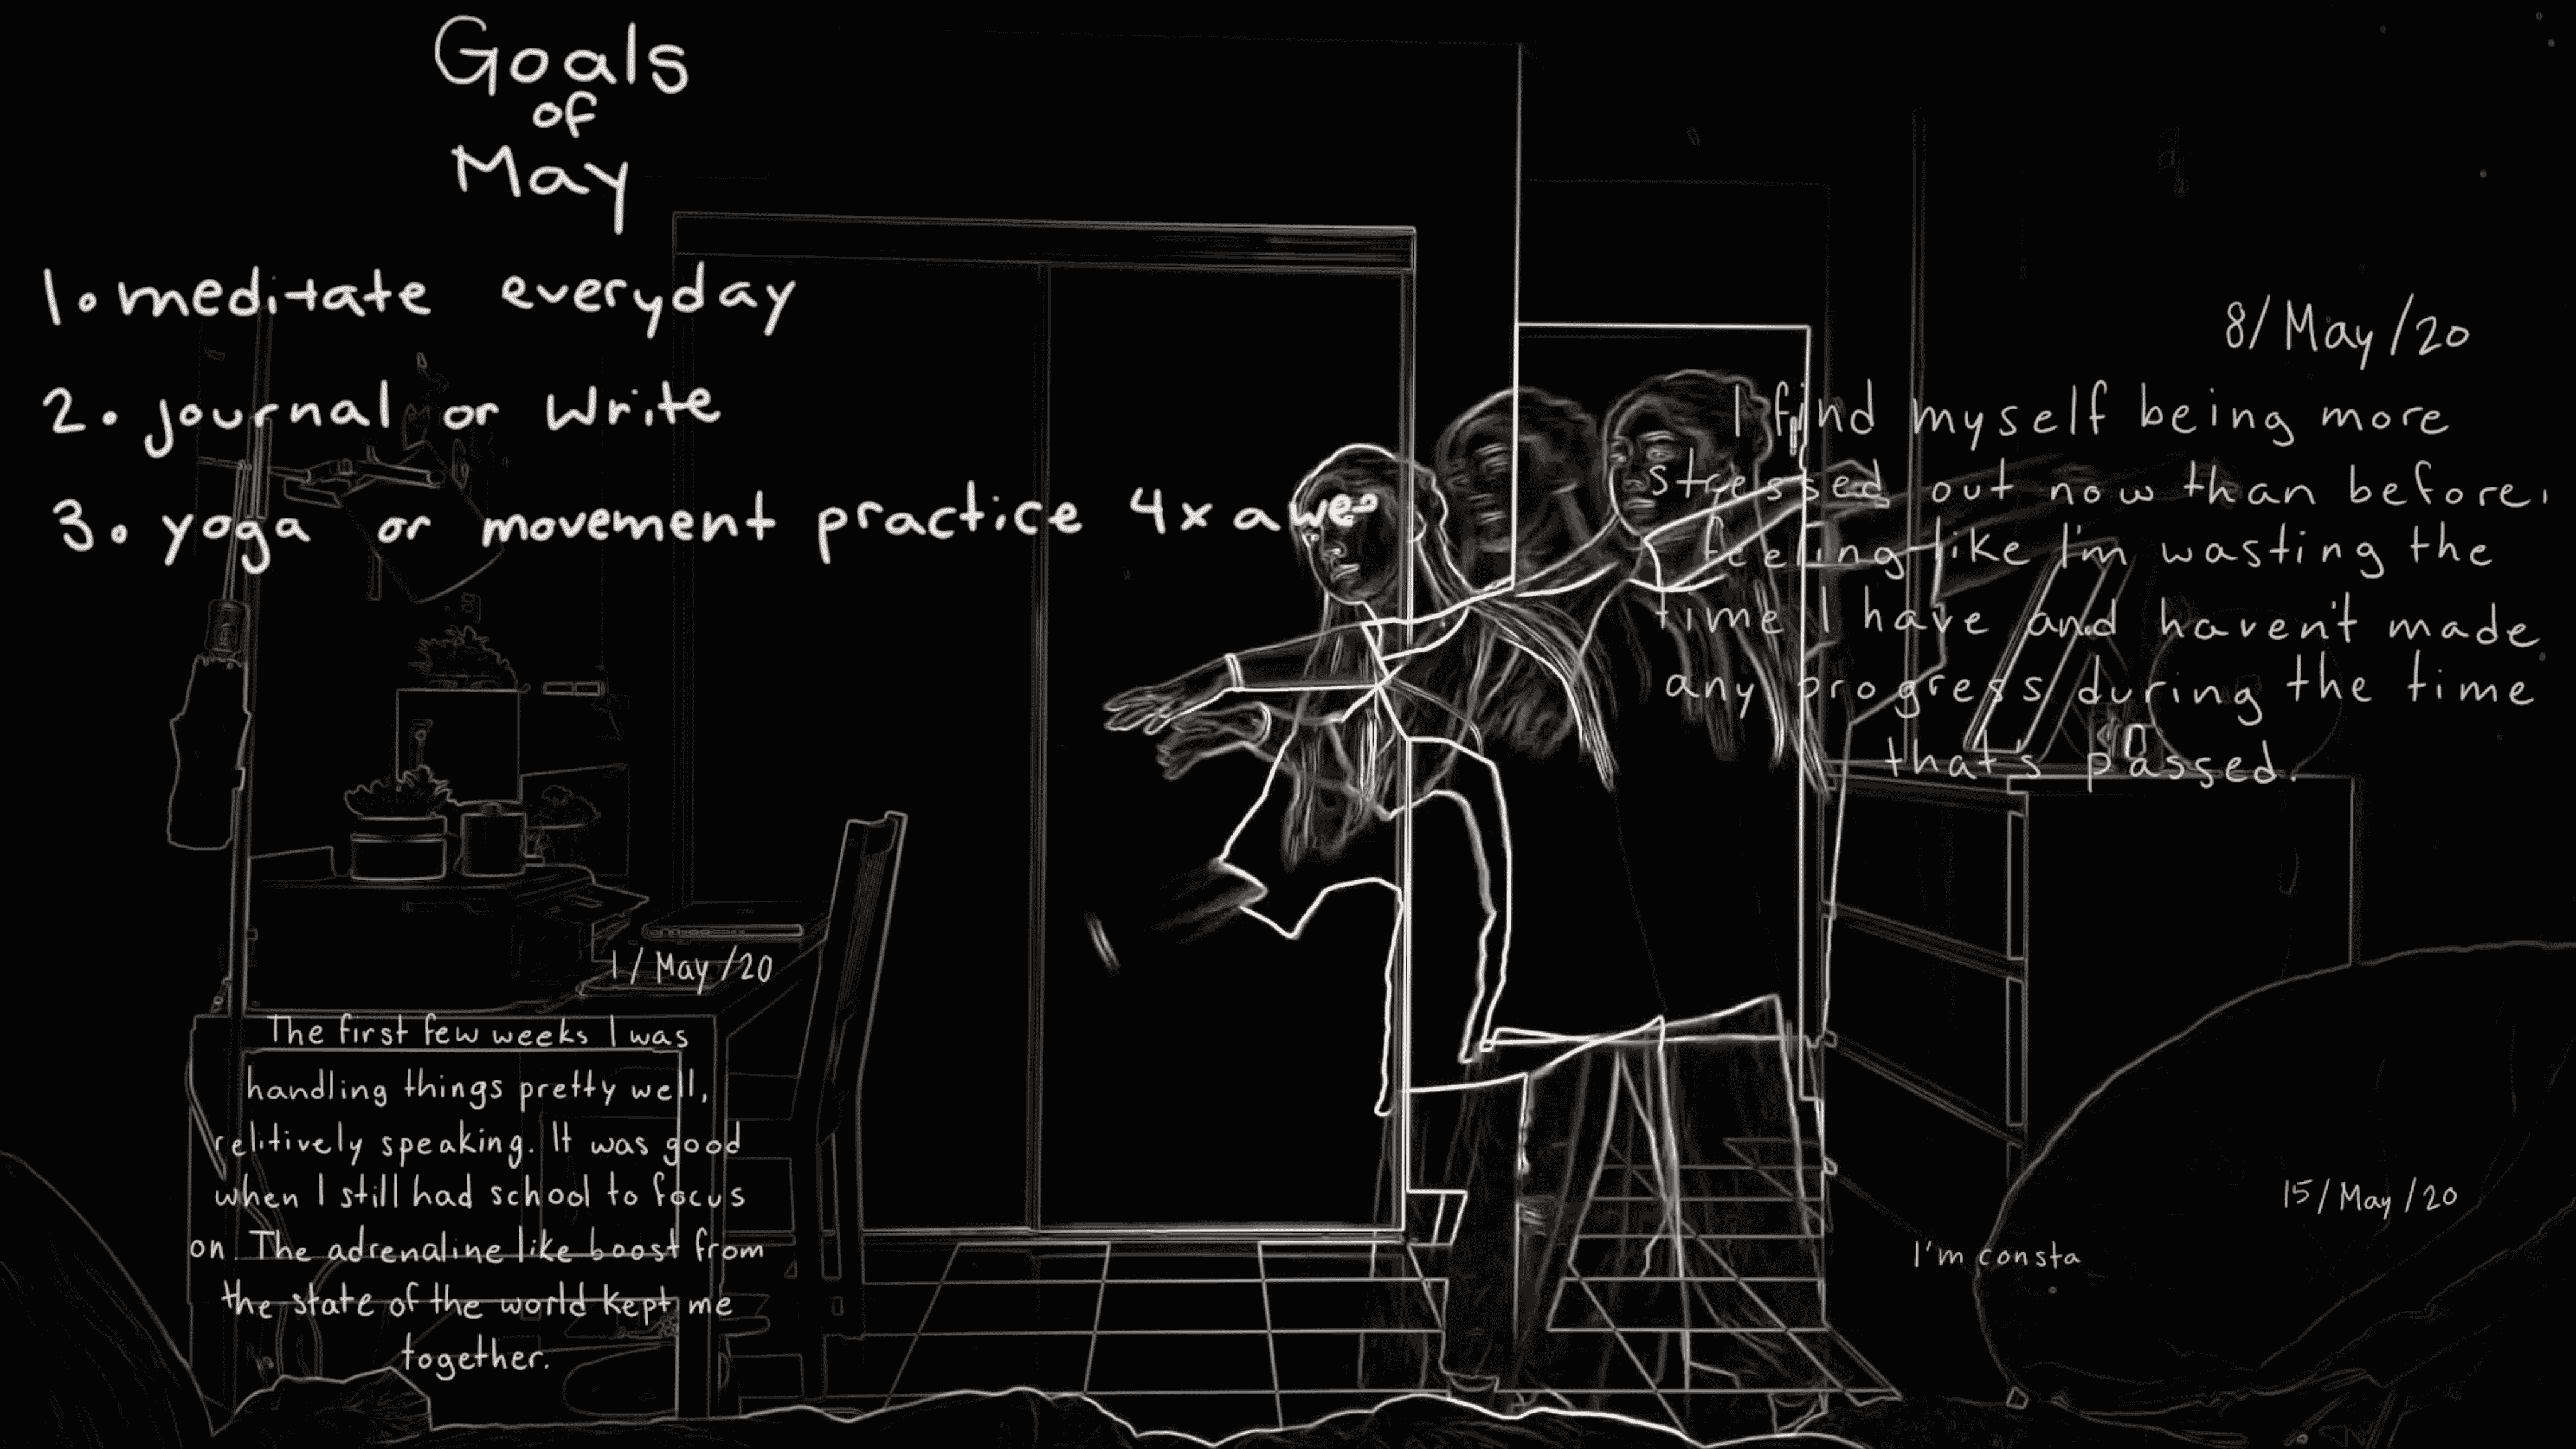 Goals
of
May
1. meditate everyday
2. journal or write
3. yoga or movement practice 4x a wee
1/May/20
The first few weeks I was
handling things pretty well,
relitively speaking. It was good
when I still had school to focus
on. The adrenaline like boost from
the state of the world kept me
together.
8/May/20
I find myself being more
stressed out now than before,
feeling like I'm wasting the
time I have and haven't made
any progress during the time
that's passed.
15/May/20
I'm consta